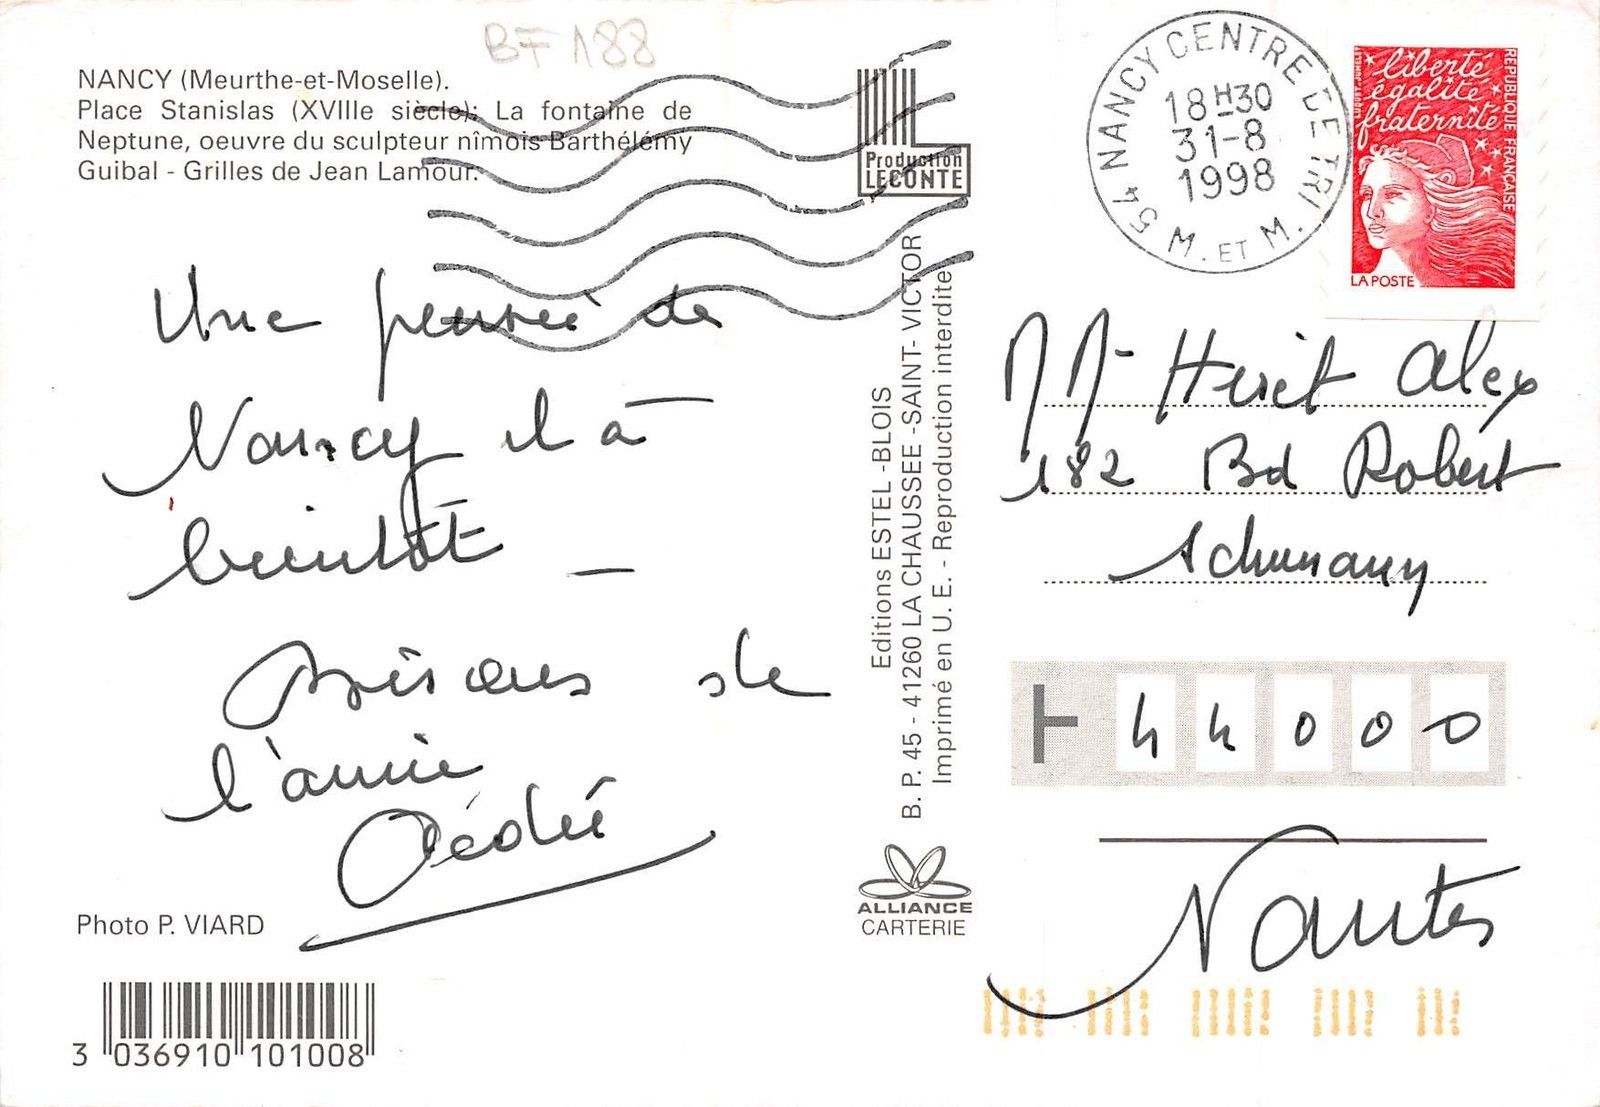 BF 188
NANCY (Meurthe-et-Moselle).
Place Stanislas (XVIIIe siècle): La fontaine de
Neptune, oeuvre du sculpteur nîmois Barthélémy
Guibal - Grilles de Jean Lamour.
Une pensée de
Nancy et à
bientôt
de
l'amie
Photo P. VIARD
3 036910 101008
Production
LECONTE
Editions ESTEL -BLOIS
B. P. 45 - 41260 LA CHAUSSEE -SAINT- VICTOR
Imprimé en U. E. - Reproduction interdite
ALLIANCE
CARTERIE
54 NANCY CENTRE DE TRI M. ET M.
18H30
31-8
1998
liberté
égalité
fraternité
REPUBLIQUE FRANÇAISE
LA POSTE
Alex
182 Bd Robert
Schuman
44000
Nantes